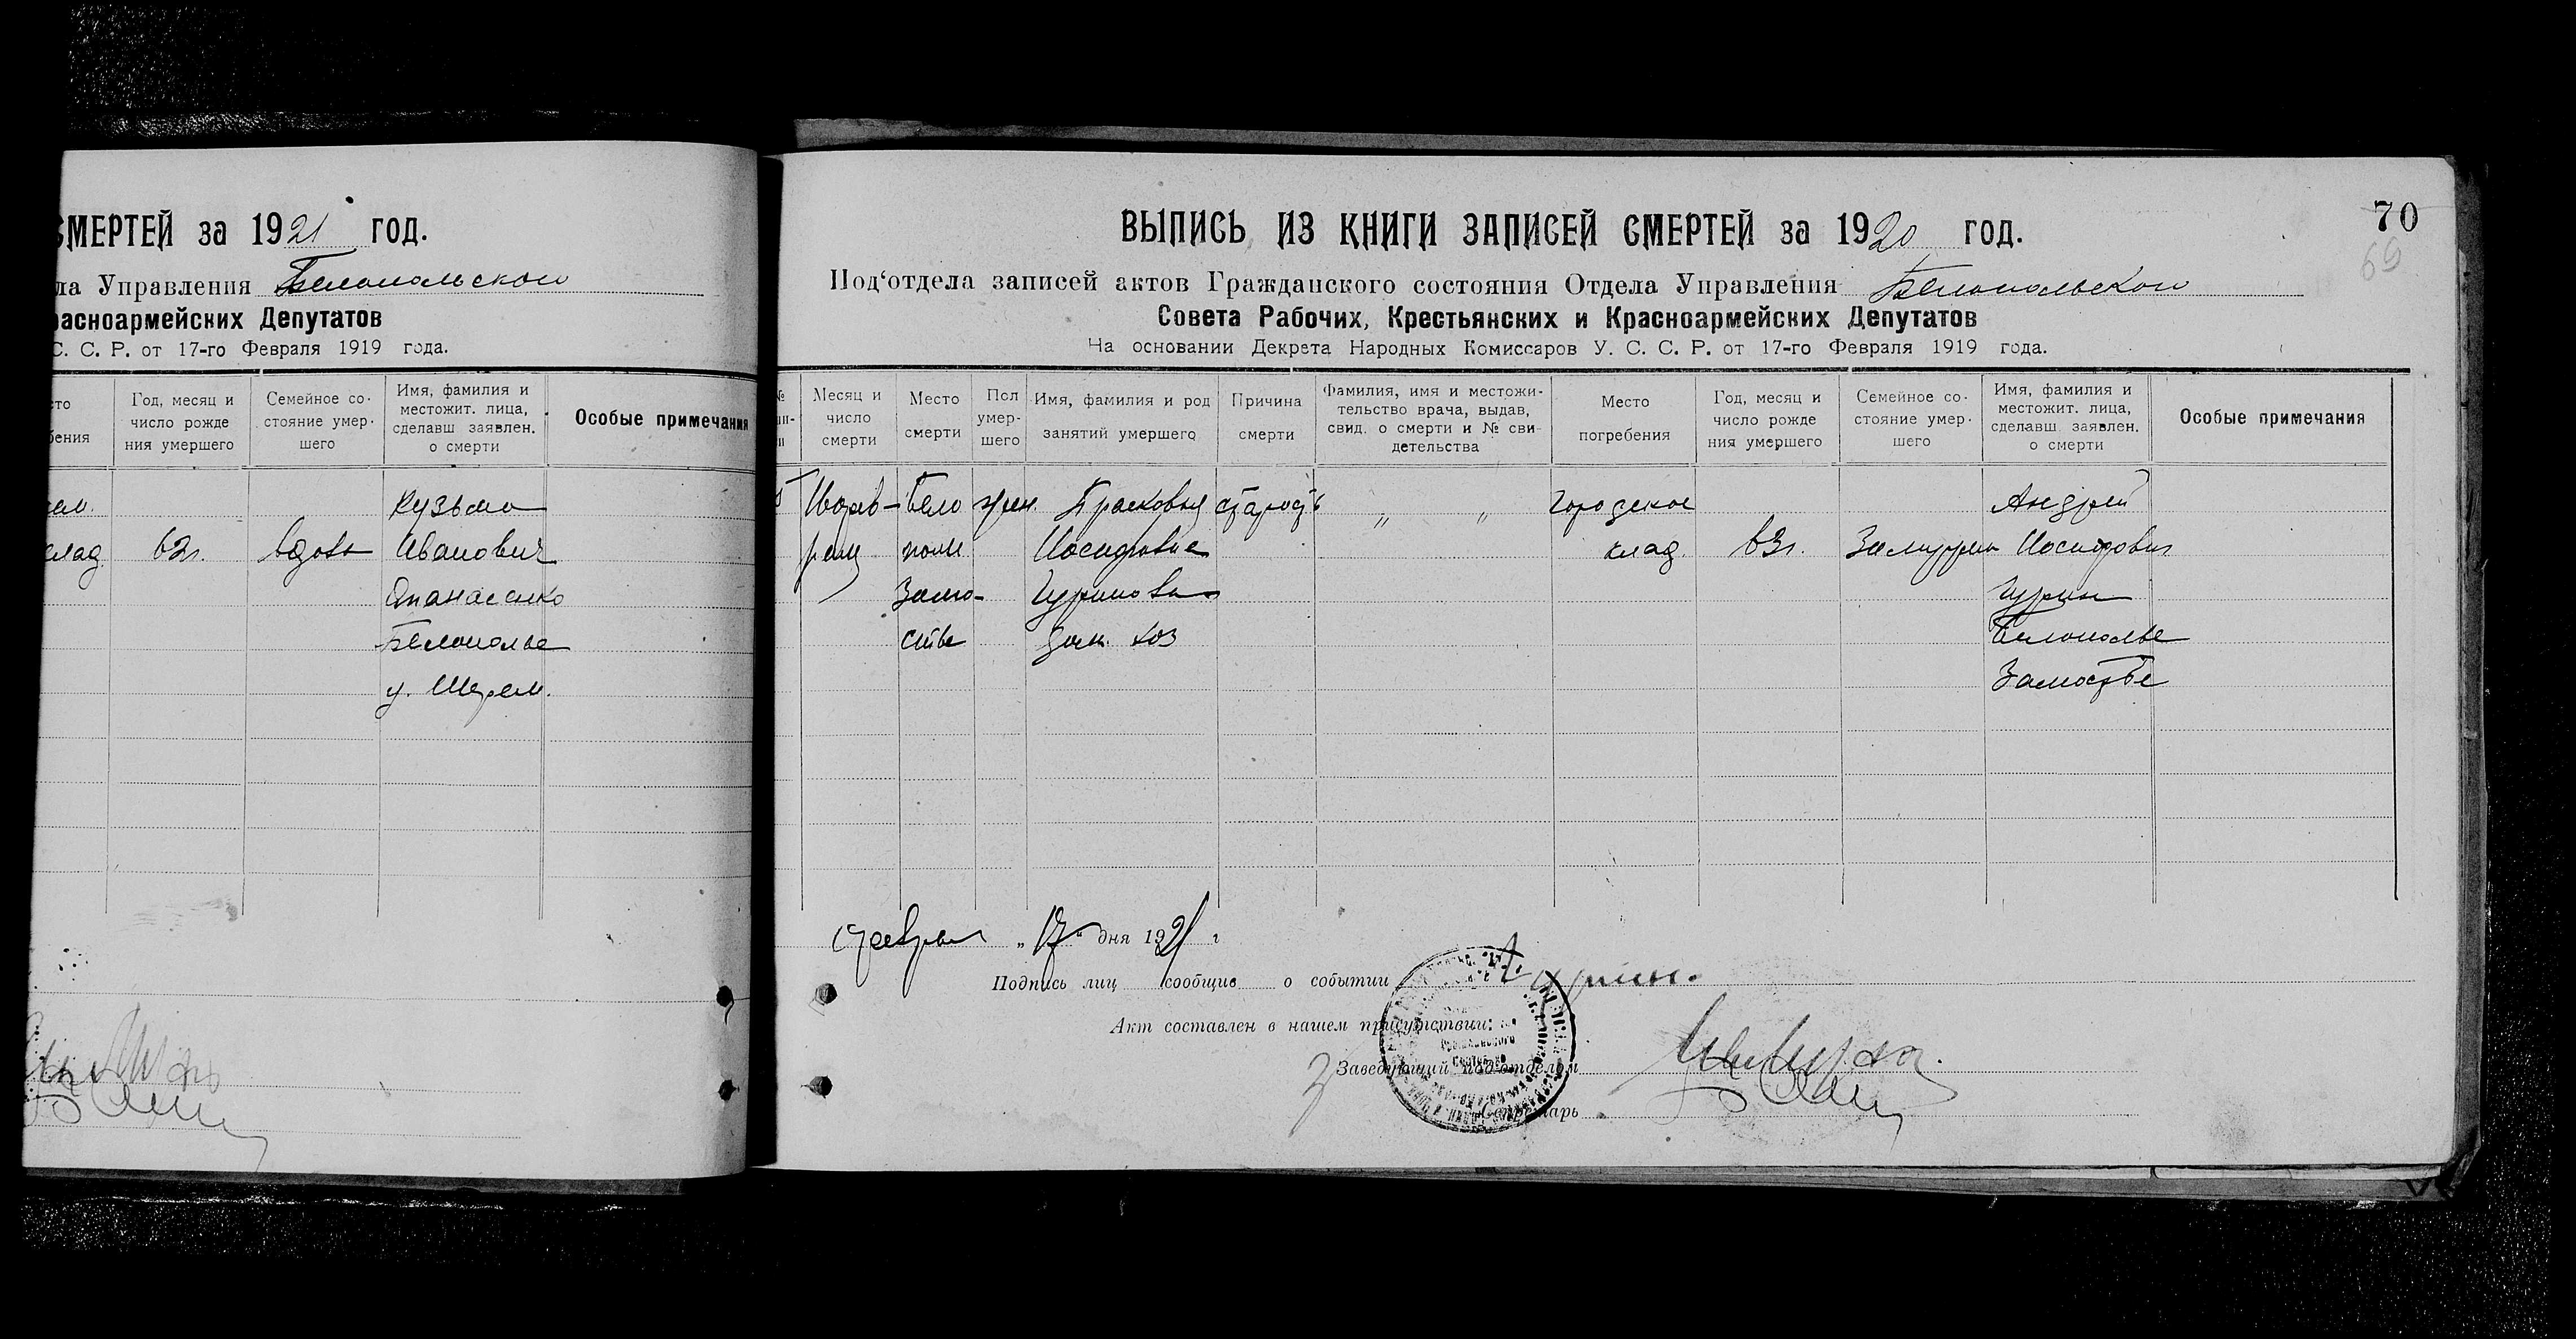 СМЕРТЕЙ за 1921 год.
ла Управления Белопольской
расноармейских Депутатов
С. С. Р. от 17-го Февраля 1919 года.
сто
бения
Год, месяц и
число рожде
ния умершего
Семейное со-
стояние умер-
шего
Имя, фамилия и
местожит. лица,
сделавш заявлен.
о смерти
Особые примечания
Кузьма
клад 62г. вдова Иванович
Опанасенко
Белополье
у. Шерем.
70
69
ВЫПИСЬ ИЗ КНИГИ ЗАПИСЕЙ СМЕРТЕЙ за 1920 год.
Под‘отдела записей актов Гражданского состояния Отдела Управления Белопольской
Совета Рабочих, Крестьянских и Красноармейских Депутатов
На основании Декрета Народных Комиссаров У. С. С. Р. от 17-го Февраля 1919 года.
№
Месяц и
число
смерти
Место
смерти
Пол
умер-
шего
Имя, фамилия и род
занятий умершего
Причина
смерти
Фамилия, имя и местожи-
тельство врача, выдав,
свид. о смерти и № сви-
детельства
Место
погребения
Год, месяц и
число рожде
ния умершего
Семейное со-
стояние умер-
шего
Имя, фамилия и
местожит. лица,
сделавш. заявлен.
о смерти
Особые примечания
Бело жен. Прасковья старость „ „ городское Андрей
полье Иосифовна клад. 63г. Замужем Иосифович
Замо- Гуринова Гурин
стье дом. хоз Белополье
Замостье
февраля „17“ дня 1921 г
Подпись лиц сообщив о событии Гурин.
Акт составлен в нашем присутствии:
Заведующий под‘отделом
Секретарь